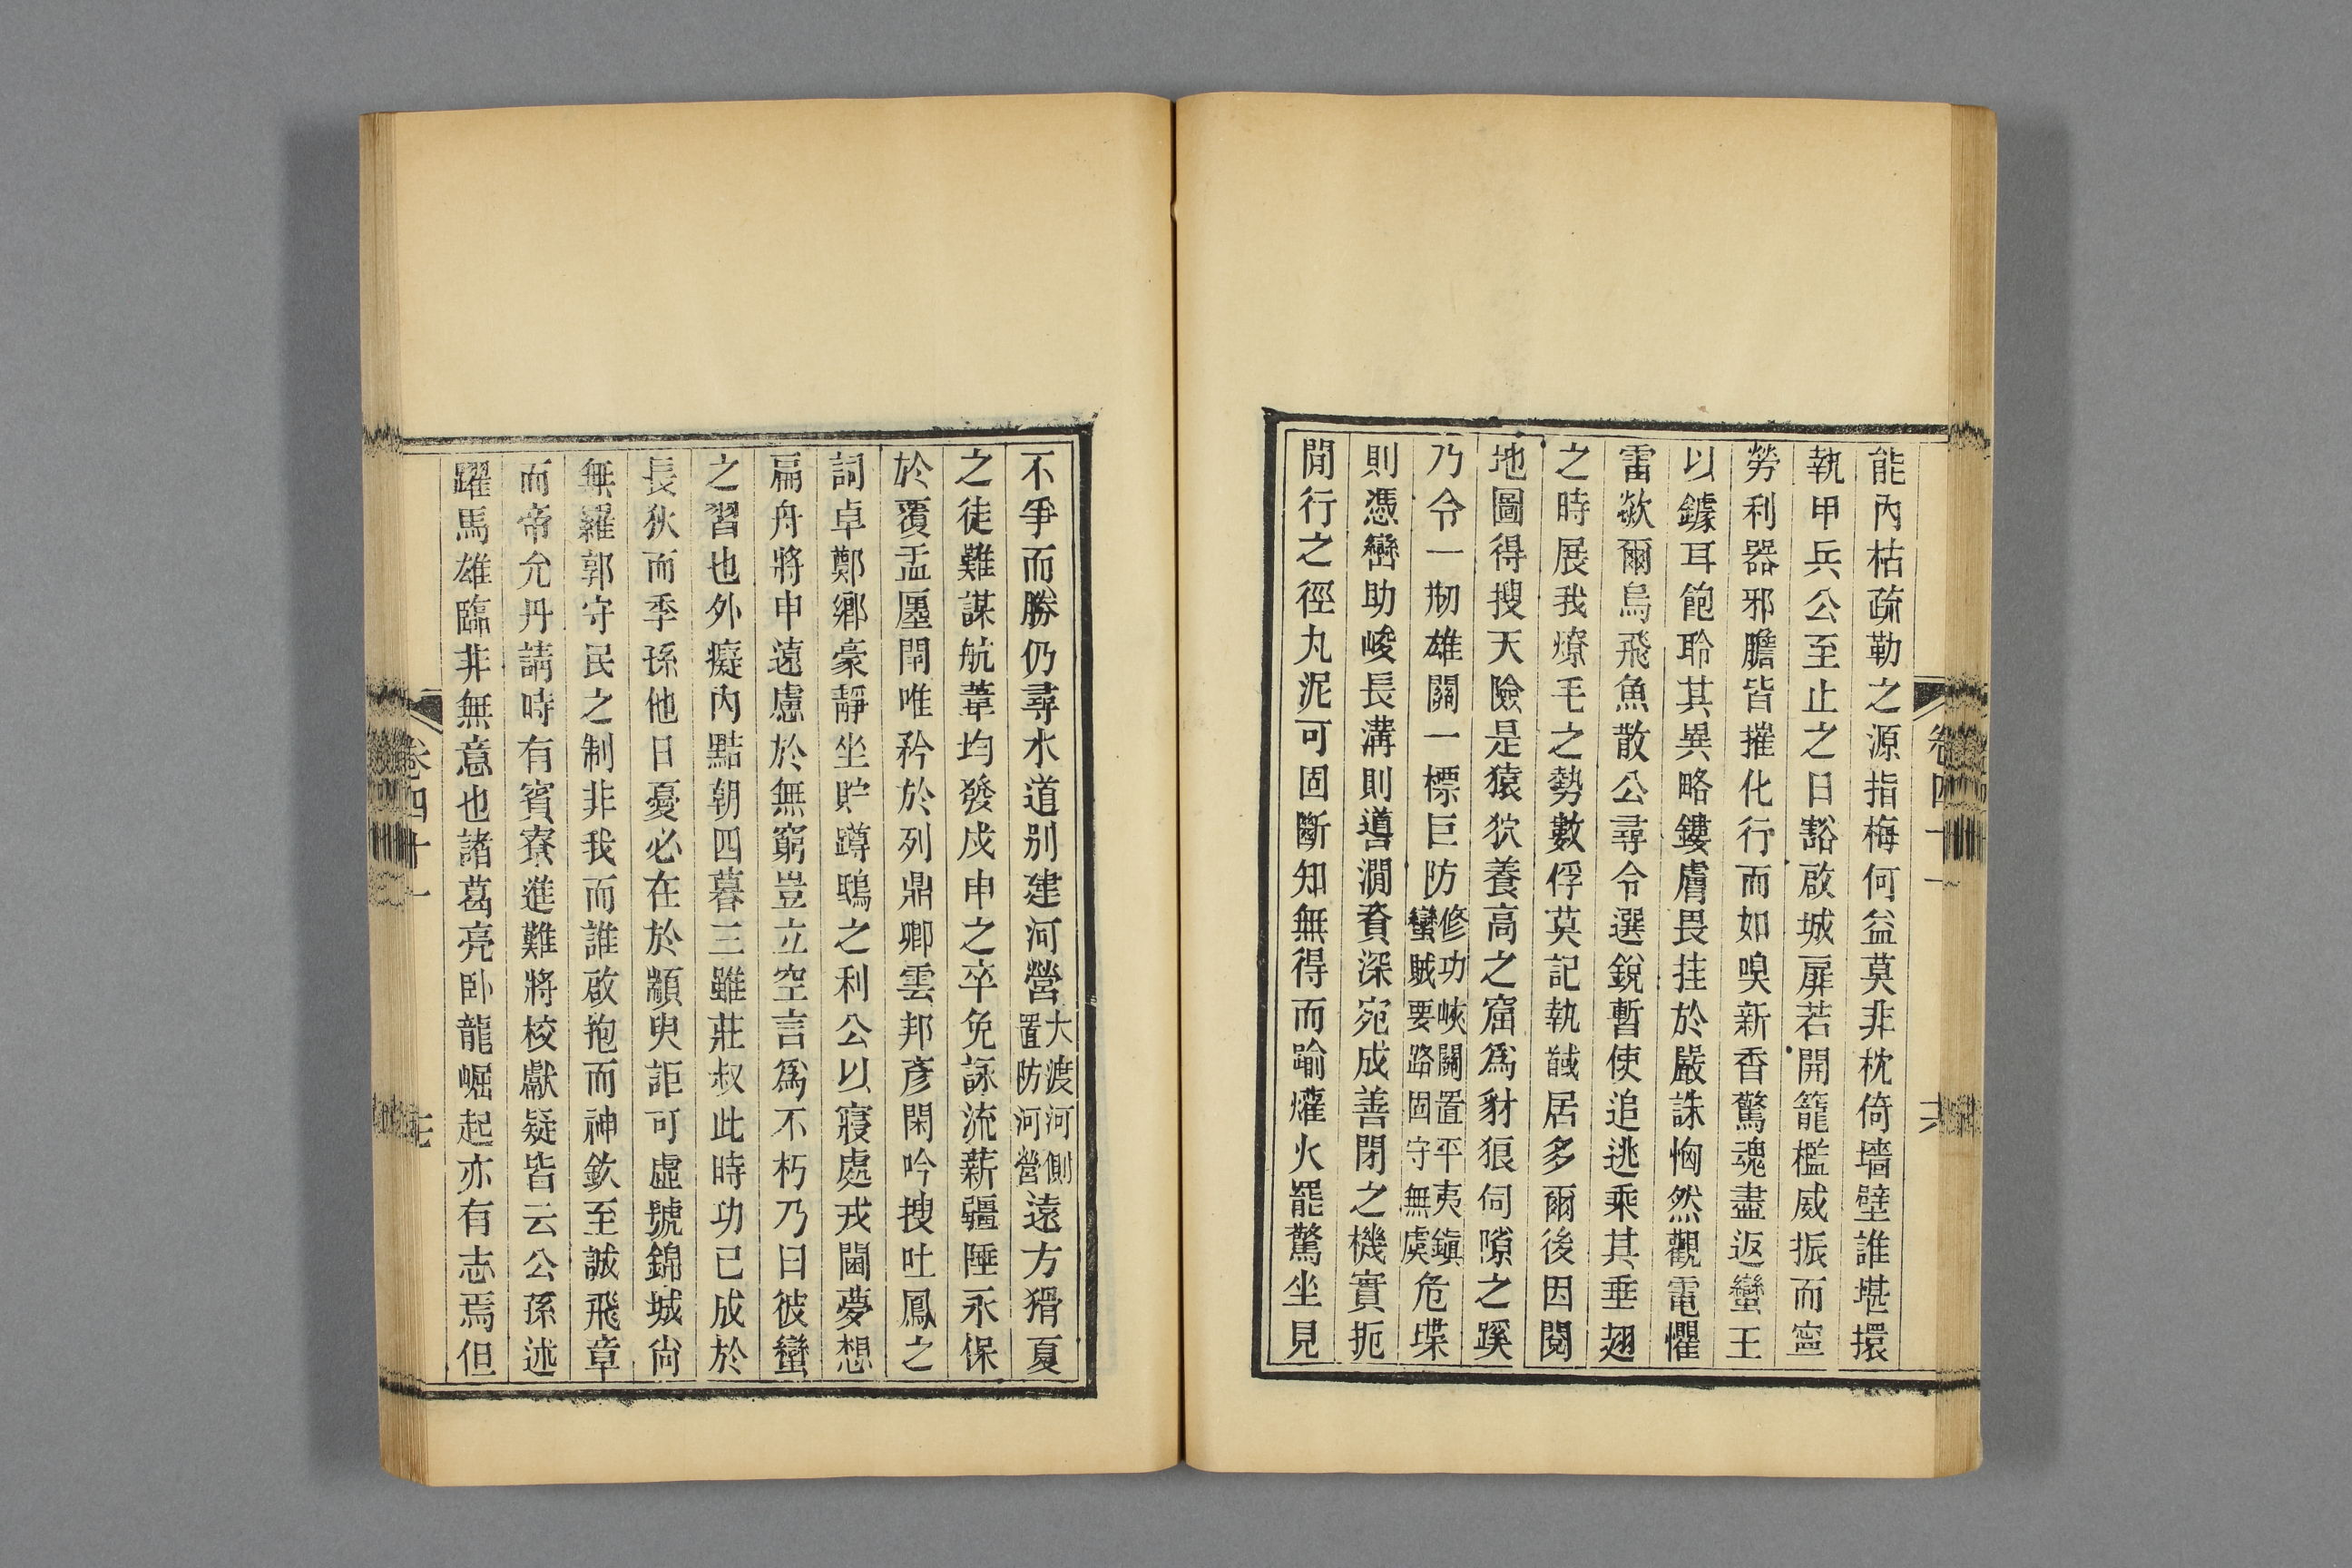 能內枯疏勒之源指梅何益莫非枕倚墻壁誰堪擐
執甲兵公至止之日豁啟城扉若開籠檻威振而寧
勞利器邪膽皆摧化行而如嗅新香驚魂盡返蠻王
以鐻耳飽聆其異略鏤膚畏挂於嚴誅恟然觀電懼
雷欻爾烏飛魚散公尋令選銳暫使追逃乘其垂翅
之時展我燎毛之勢數俘莫記執馘居多爾後因閱
地圖得搜天險是猿狖養高之窟爲豺狼伺隙之蹊
乃令一剏雄關一標巨防修功峽關置平夷鎮蠻賊要路固守無虞危堞
則憑巒助峻長溝則導澗資深宛成善閉之機實扼
間行之徑丸泥可固斷知無得而踰爟火罷驚坐見
卷四十一
十六
不爭而勝仍尋水道別建河營大渡河側置防河營遠方猾夏
之徒難謀航葦均發戍申之卒免詠流薪疆陲永保
於覆盂廛閈唯矜於列鼎卿雲邦彥閑吟搜吐鳳之
詞卓鄭鄉豪靜坐貯蹲鴟之利公以寢處戎閫夢想
扁舟將申遠慮於無窮豈立空言爲不朽乃曰彼蠻
之習也外癡內黠朝四暮三雖莊叔此時功已成於
長狄而季孫他日憂必在於顓臾詎可虛號錦城尙
無羅郭守民之制非我而誰啟抱而神欽至誠飛章
而帝允丹請時有賓寮進難將校獻疑皆云公孫述
躍馬雄臨非無意也諸葛亮臥龍崛起亦有志焉但
卷四十一
十七